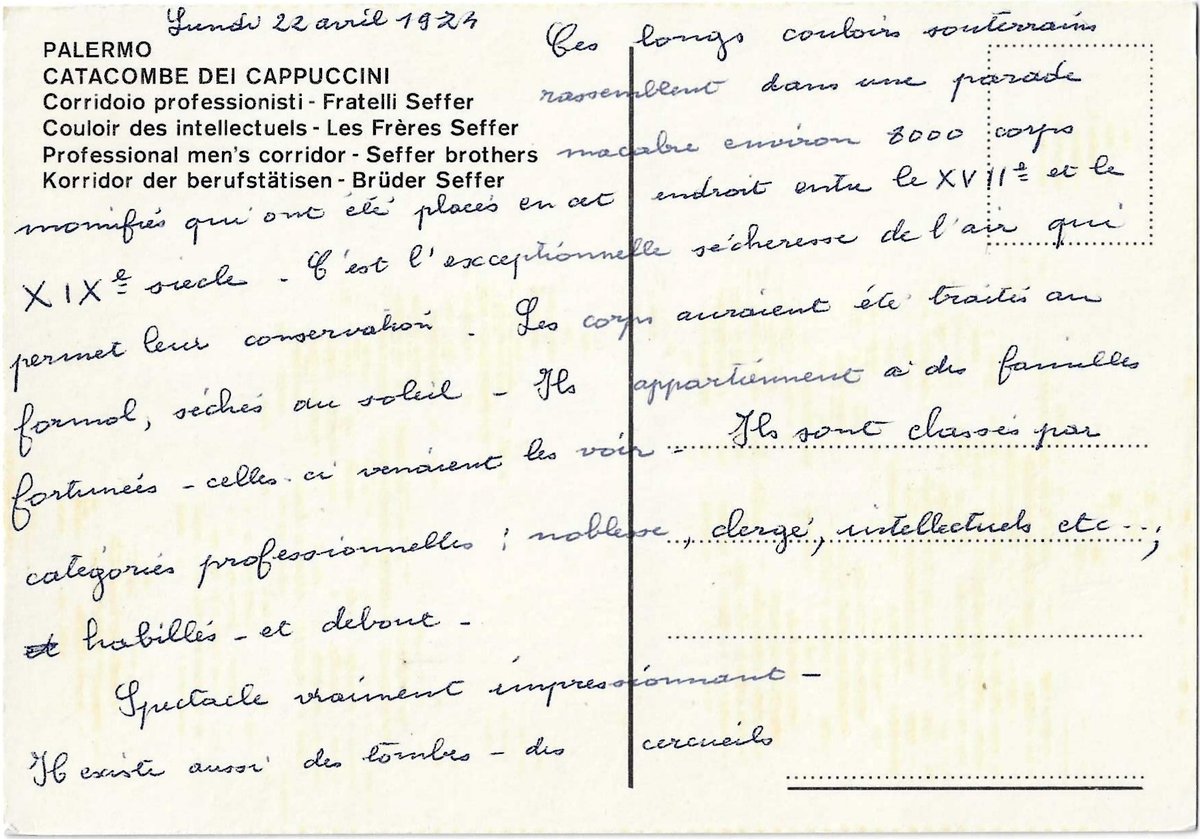 Lundi 22 avril 1974
PALERMO
CATACOMBE DEI CAPPUCCINI
Corridoio professionisti - Fratelli Seffer
Couloir des intellectuels - Les Frères Seffer
Professional men's corridor - Seffer brothers
Korridor der berufstätisen - Brüder Seffer
Ces longs couloirs souterrains
rassemblent dans une parade
macabre environ 8000 corps
momifiés qui ont été placés en cet endroit entre le XVIIe et le
XIXe siècle - C'est l'exceptionnelle sécheresse de l'air qui
permet leur conservation - Les corps auraient été traités au
formol, séchés au soleil - Ils appartiennent à des familles
fortunées - celles-ci venaient les voir - Ils sont classés par
catégories professionnelles : noblesse, clergé, intellectuels etc...,
et habillés - et debout -
Spectacle vraiment impressionnant -
Il existe aussi des tombes - des cercueils